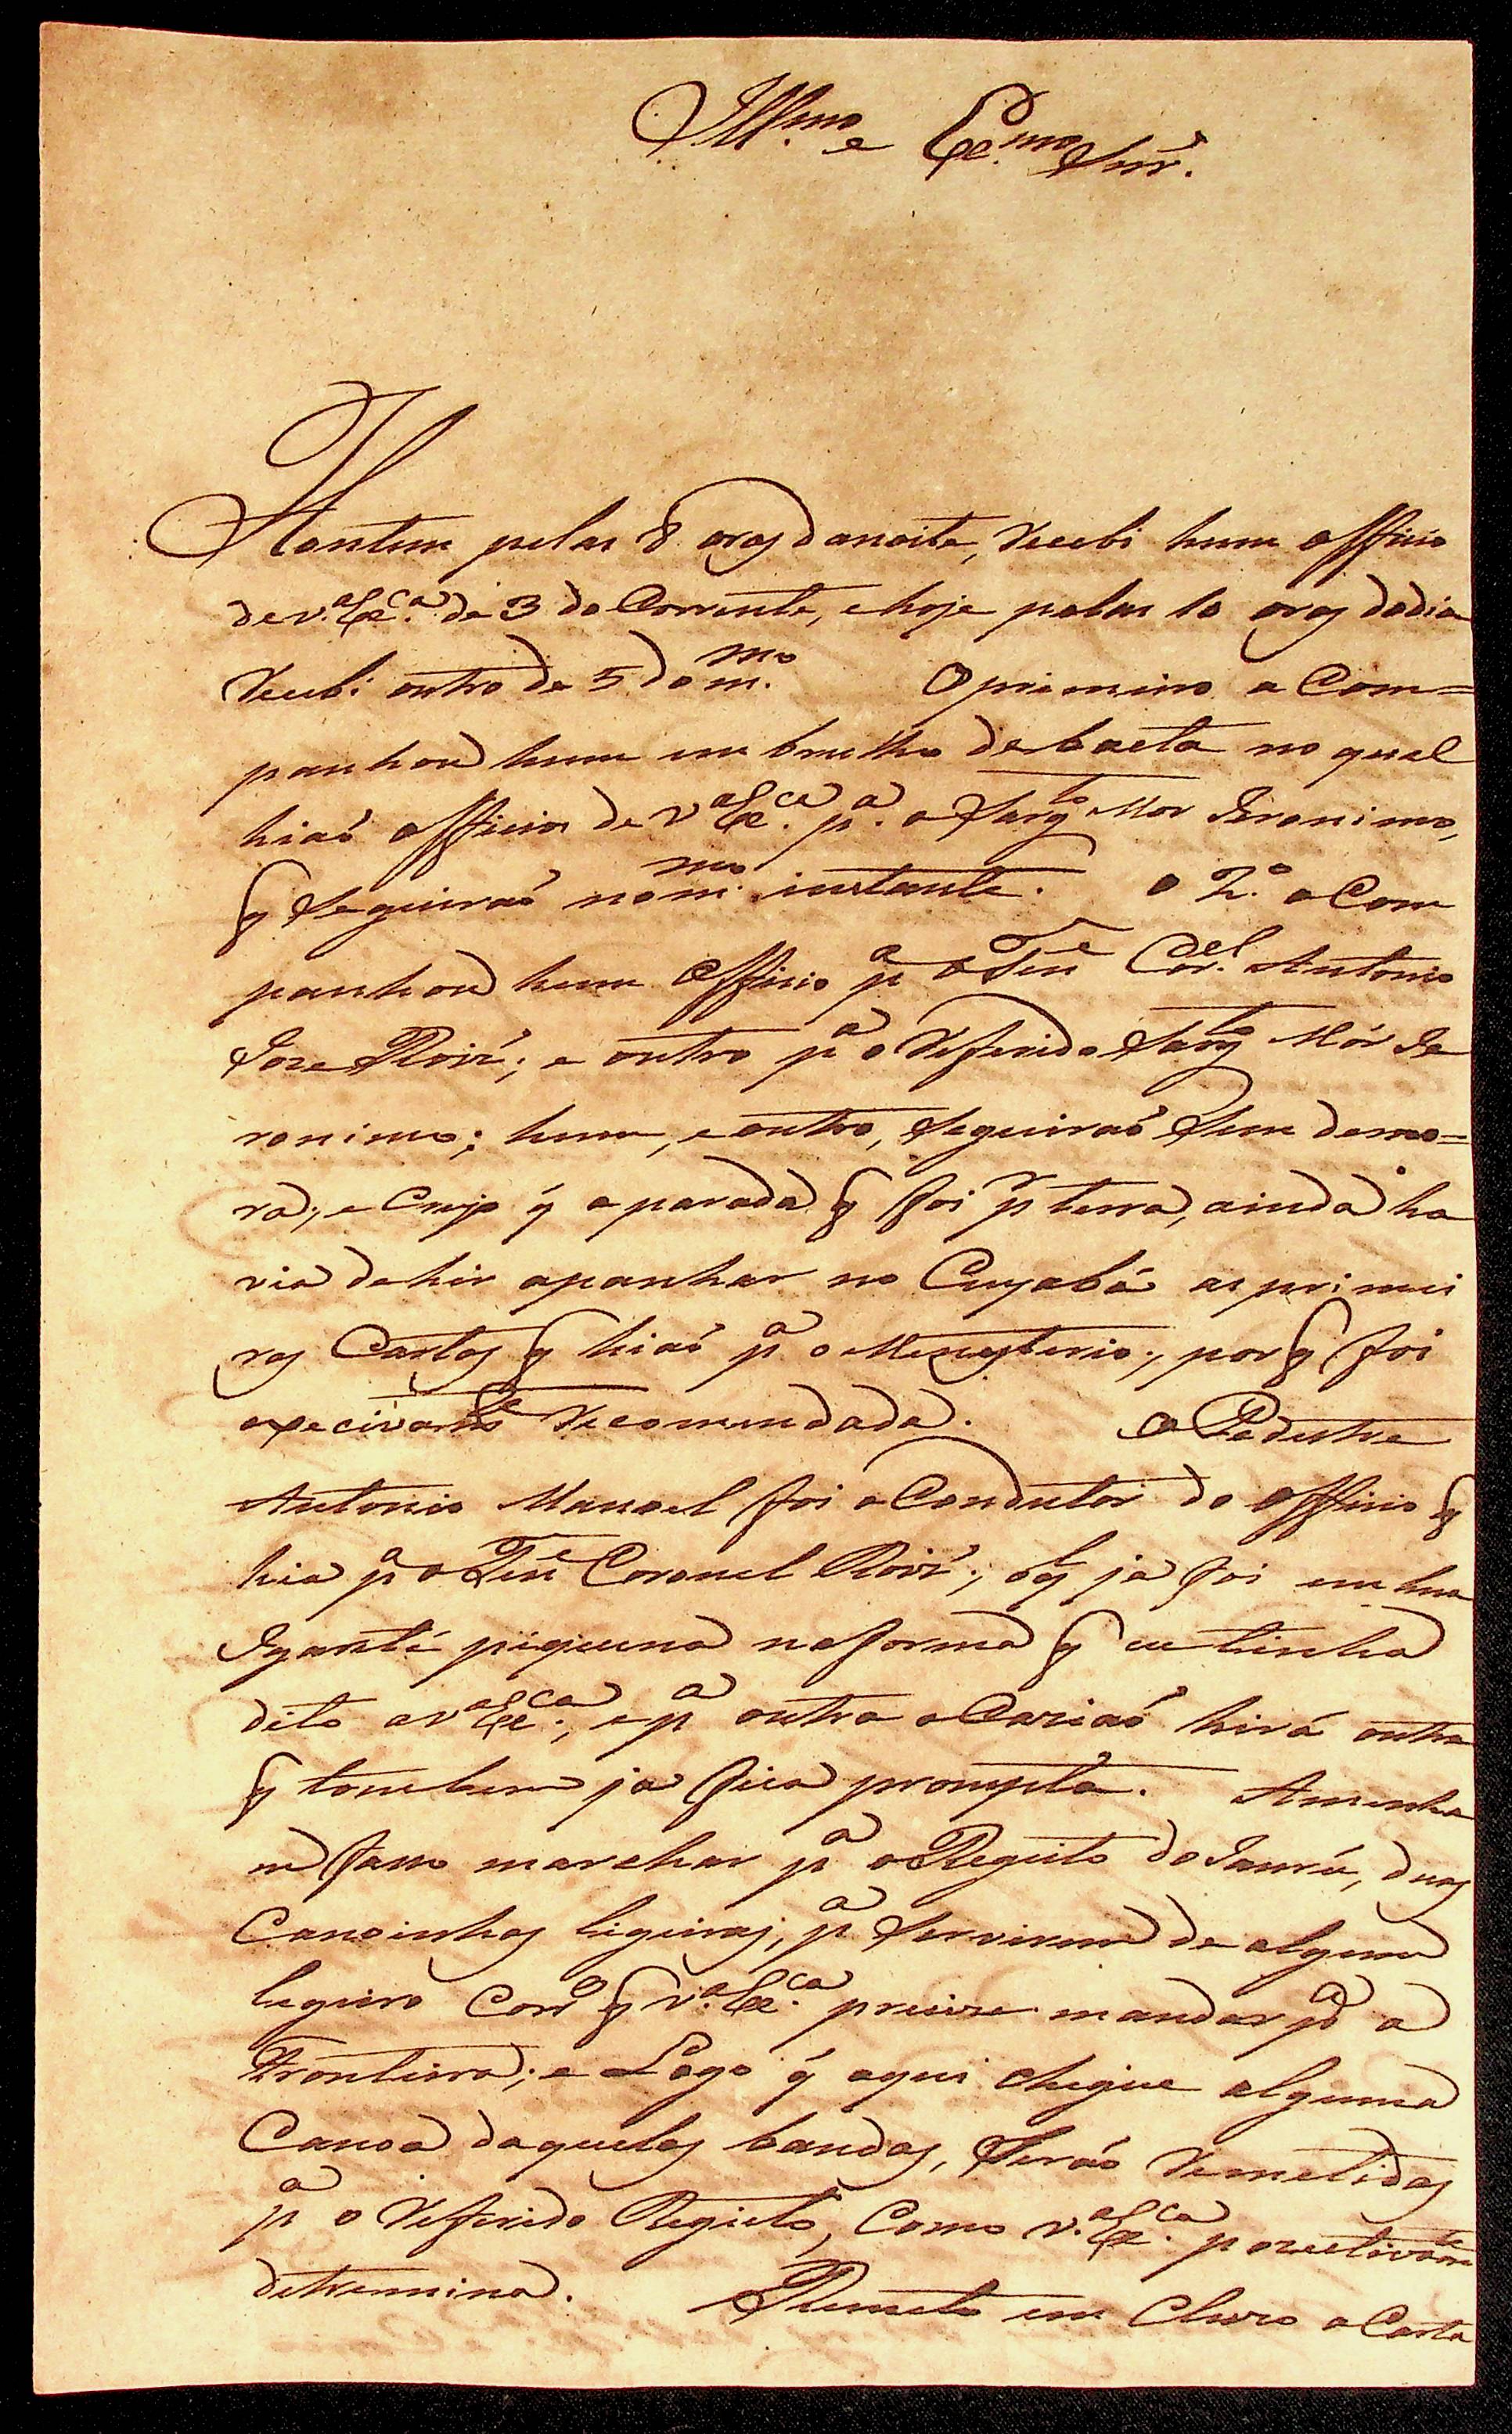 Illmo. e Exmo. Snr.
Hontem pelas 8 oras da noite, recebi hum officio
de v.a Ex.ca de 3 do Corrente, e hoje pelas 10 oras do dia
recebi outro de 5 do m.mo O primeiro a Com=
panhou hum embrulho de baeta no qual
hiaõ officios de v.a Ex.ca p.a o Sarg.to Mor Jeronimo,
q Seguiraõ no m.mo instante. o 2.o a Com
panhou hum Officio p.a o Ten.e Cor.el Antonio
Joze Roiz; e outro p.a o referido Sarg.to Mór Je
ronimo; hum, e outro, Seguiraõ Sem demo=
ra; e Cujo q̃ a parada q foi p.r terra, ainda ha
via de hir apanhar no Cuyabá as primei
ras Cartas q hiaõ p.a o Menysterio; por q foi
expecivam.te recomendada. O Pedestre
Antonio Manoel foi o Condutor do officio q
hia p.a o Ten.e Coronel Roiz; o q ja foi em hua
Igarité piquena na forma q eu tinha
dito a v.a Ex.ca, e p.a outra o Caziaõ hirá outra
q tambem ja fica prompta. Amenha
m faço marchar p.a o Registo do Jaurú, duas
Canoinhas ligeiras, p.a Servirem de algum
legeiro Corr.o q v.a Ex.ca precize mandar p.a a
Fronteira; e Logo q̃ aqui chegue alguma
Canoa daquelas bandas, Seraõ remetidas
p.a o referido Registo, Como v.a Ex.ca pozetivam.te
detremina. Remeto em Cluzo a Carta